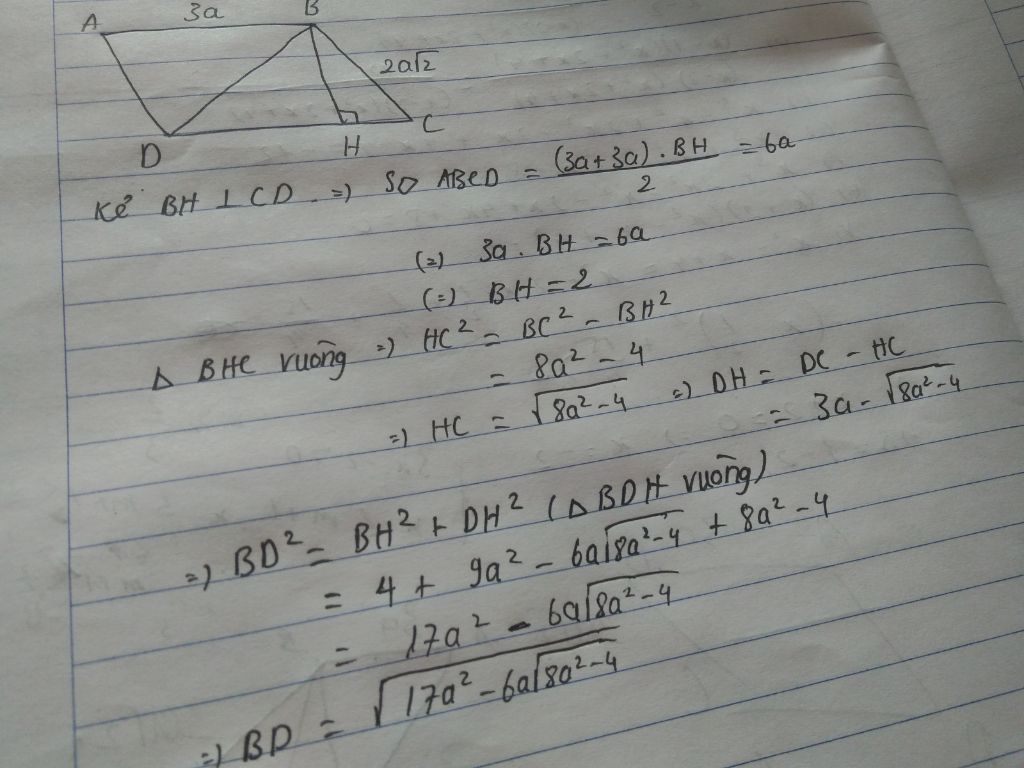 A 3a B
2a√2
D H C
Kẻ BH ⊥ CD. =) SO ABCD = (3a+3a).BH / 2 = 6a
(=) 3a.BH = 6a
(=) BH = 2
Δ BHC vuông =) HC² = BC² - BH²
= 8a² - 4
=) HC = √(8a²-4) =) DH = DC - HC
= 3a - √(8a²-4)
=) BD² = BH² + DH² (Δ BDH vuông)
= 4 + 9a² - 6a√(8a²-4) + 8a² - 4
= 17a² - 6a√(8a²-4)
=) BD = √(17a² - 6a√(8a²-4))